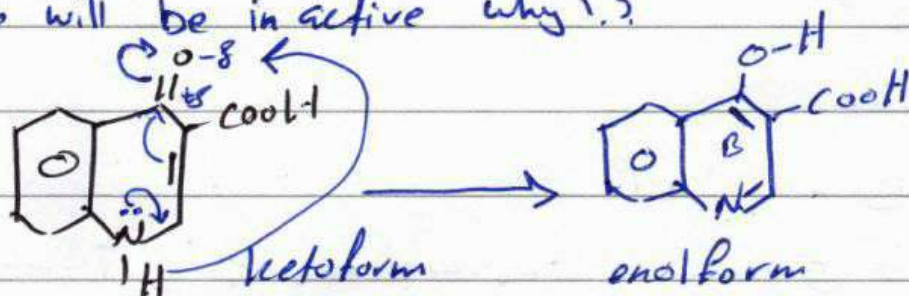 will be in active why!?
O-δ
+δ
COOH
N
H
ketoform
O-H
COOH
B
N
enolform